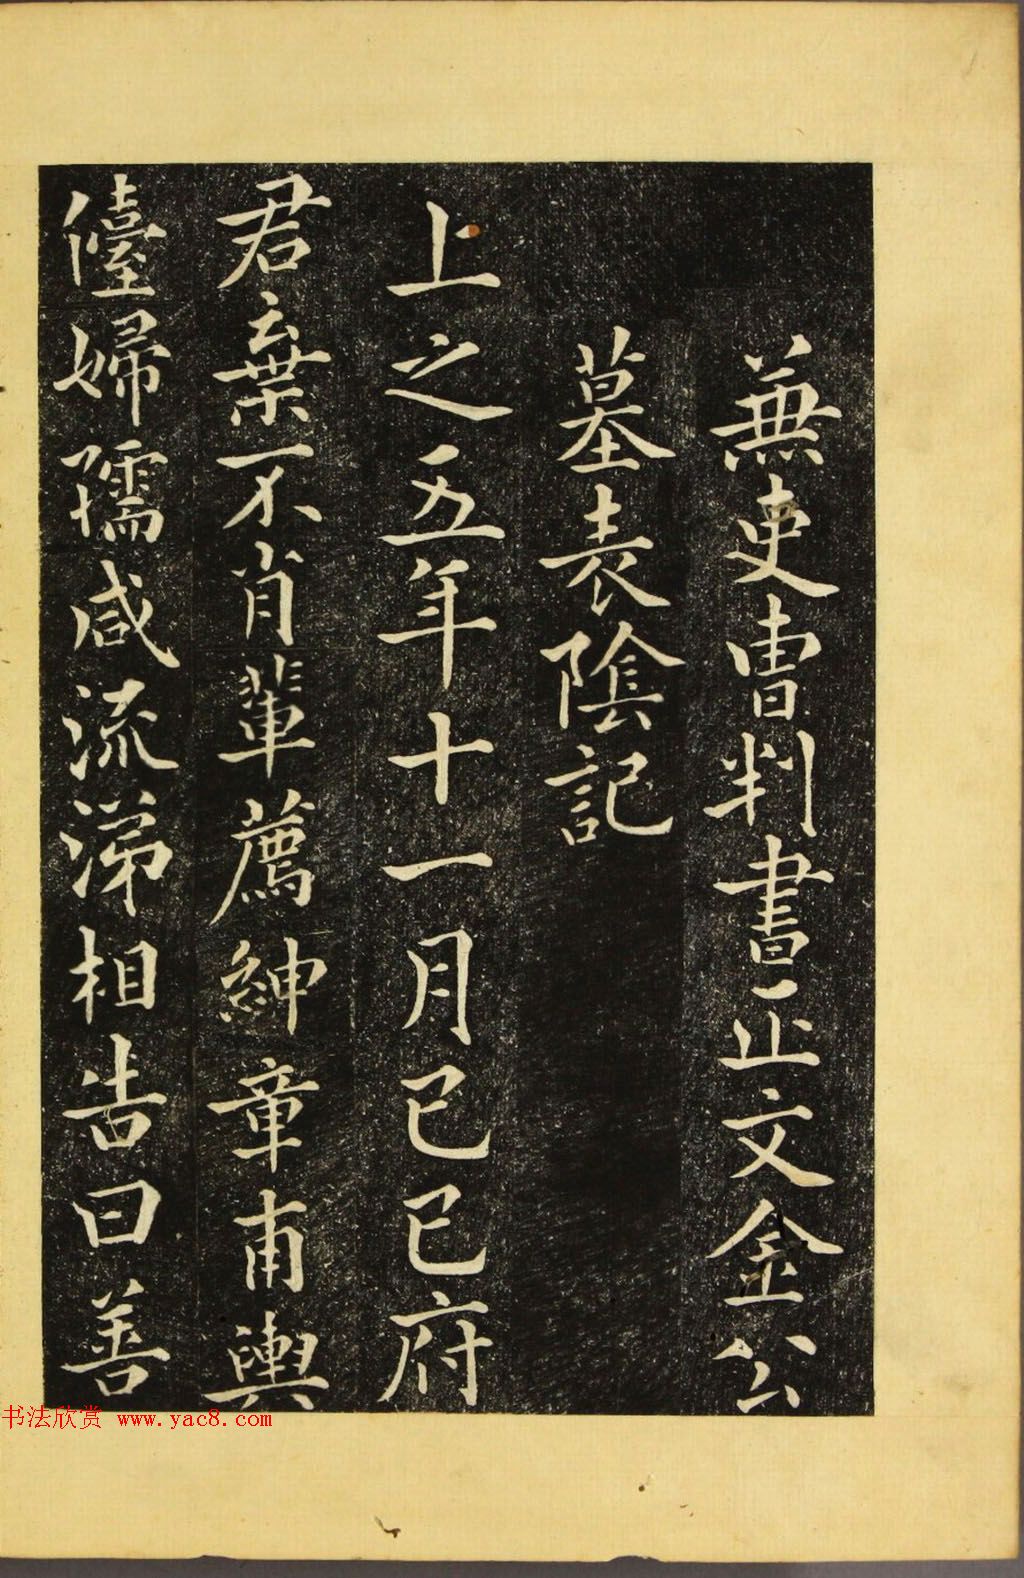 兼吏曹判書正文金公
墓表陰記
上之五年十一月己巳府
君棄不肖輩薦紳章甫輿
儓婦孺咸流涕相告曰善
书法欣赏 www.yac8.com